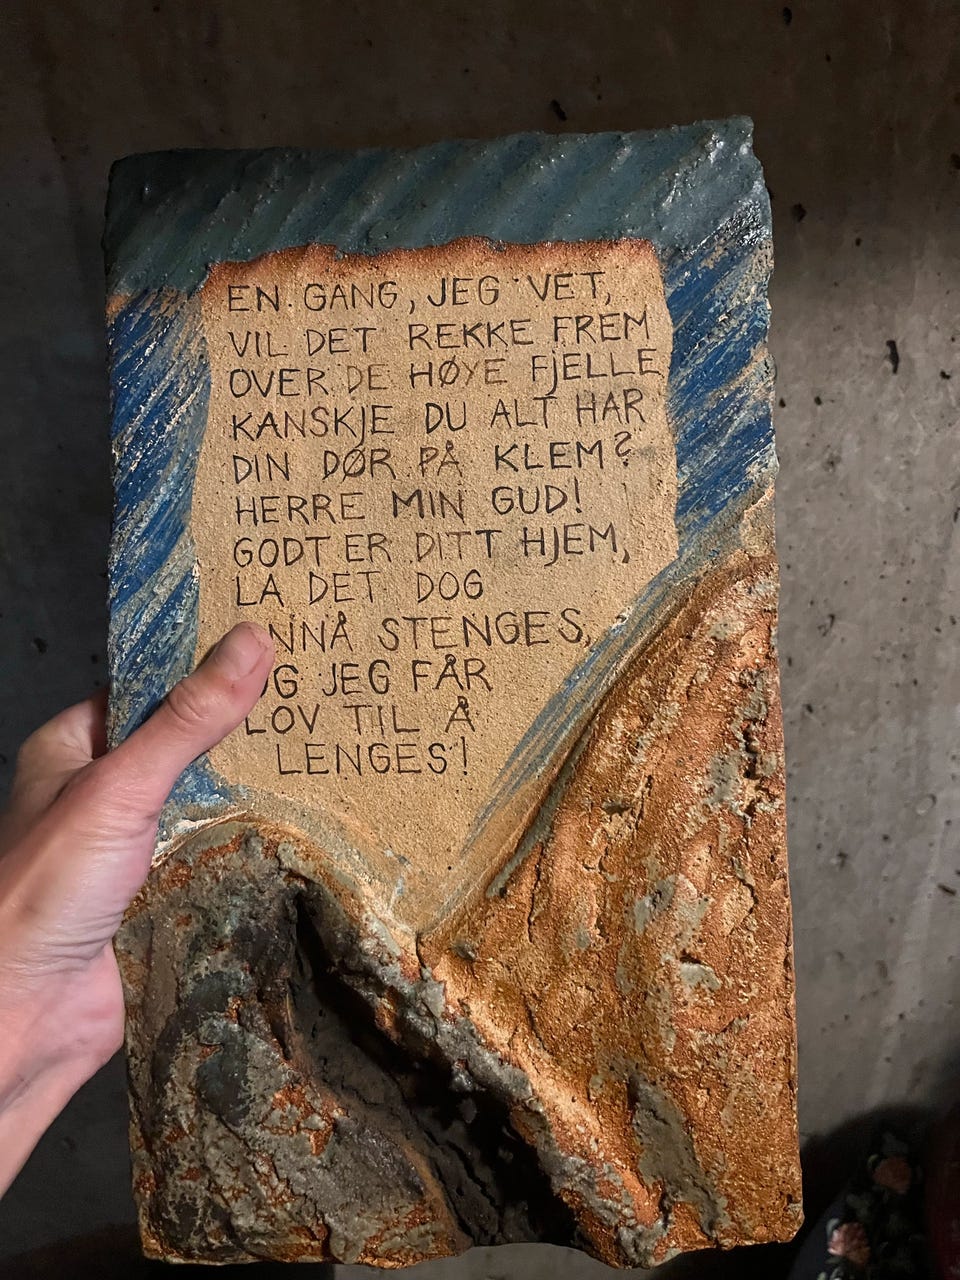 EN GANG, JEG VET,
VIL DET REKKE FREM
OVER DE HØYE FJELLE
KANSKJE DU ALT HAR
DIN DØR PÅ KLEM?
HERRE MIN GUD!
GODT ER DITT HJEM,
LA DET DOG
NNÅ STENGES,
G JEG FÅR
LOV TIL Å
LENGES!